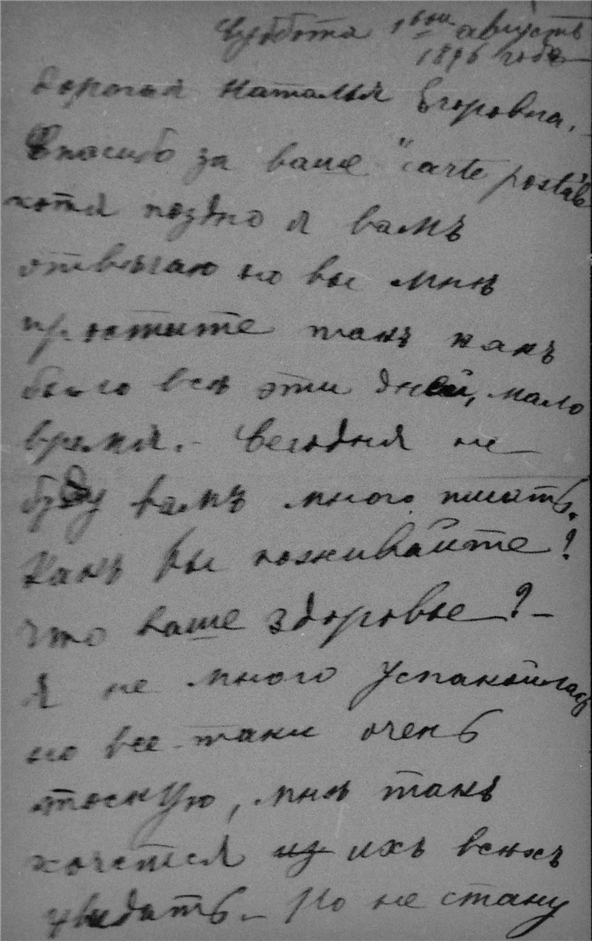 Суббота 1вои августъ
1896 года
Дорогая Наталья Егоровна.
Спасибо за ваше "carte postale
хотя поздно я вамъ
отвѣчаю но вы мнѣ
простите такъ какъ
было всѣ эти дней, мало
время.- Сегодня не
буду вамъ много писать.
Какъ вы поживайте?
Что ваше здоровье?-
Я не много успакоилась
но все-таки очень
тоскую, мнѣ такъ
хочется из ихъ всѣхъ
увидать.- Но не стану